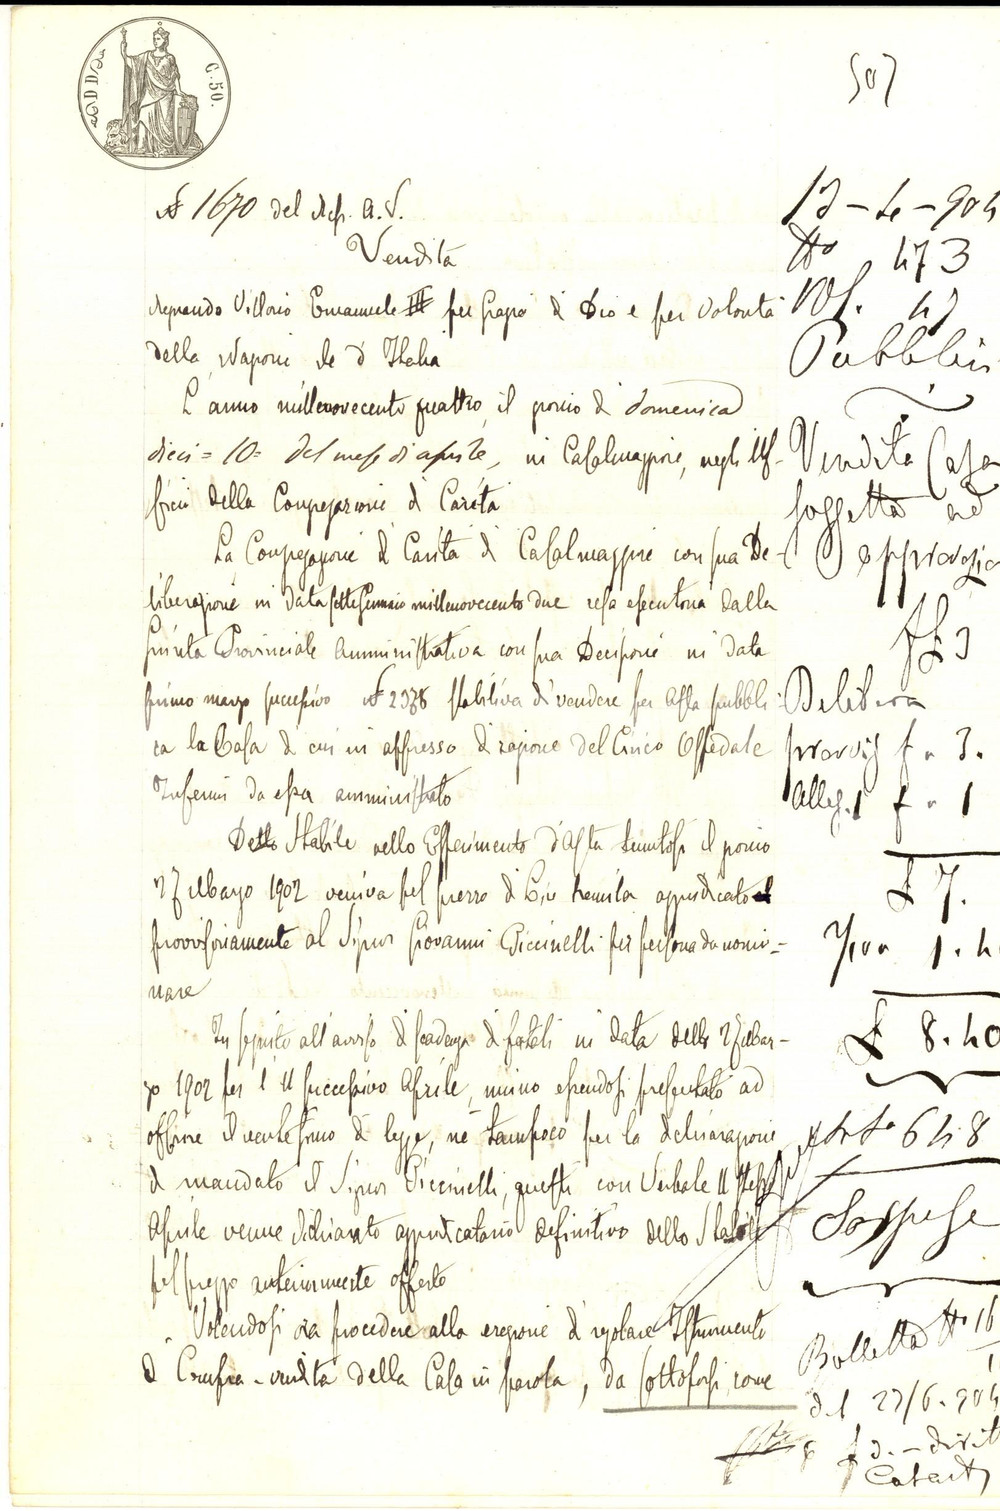 C. 50.
507
N 1670 del Rep. A. V.
Vendita
Regnando Vittorio Emanuele III per Grazia di Dio e per volontà
della Nazione Re d'Italia
L'anno millenovecento quattro, il giorno di domenica
dieci = 10 = del mese di aprile, in Casalmaggiore, negli Uf-
ficii della Congregazione di Carità
La Congregazione di Carità di Casalmaggiore con sua De-
liberazione in data sette Gennaio millenovecento due resa esecutoria dalla
Giunta Provinciale Amministrativa con sua Decisione in data
primo marzo successivo N 2378 stabiliva di vendere per Asta pubbli-
ca la Casa di cui in appresso di ragione del Civico Ospedale
Infermi da essa amministrato
Detto Stabile nello Esperimento d'Asta tenutosi il giorno
27 Marzo 1902 veniva pel prezzo di Lire tremila aggiudicato
provvisoriamente al Signor Giovanni Piccinelli per persona da nomi-
nare
In seguito all'avviso di scadenza di fatali in data dello 27 Mar-
zo 1902 per l'11 successivo Aprile, niuno essendosi presentato ad
offrire il ventesimo di legge, nè tampoco per la dichiarazione
di mandato il Signor Piccinelli, questi con Verbale 11 stesso
Aprile venne dichiarato aggiudicatario definitivo dello Stabile
pel prezzo anteriormente offerto
Volendosi ora procedere alla erezione di regolare Istrumento
di Compra-vendita della Casa in parola, da sottoporsi come
12 - 4 - 904
No 473
Vol. 47
Pubblici
Vendita Casa
soggetta ad
approvazio
Delibera
provvis f " 3.
Alleg. 1 f " 1
£ 7.
1.40
£ 8.40
648
Sospese
Bolletta No 16
del 27/6.904
diritti
Catast